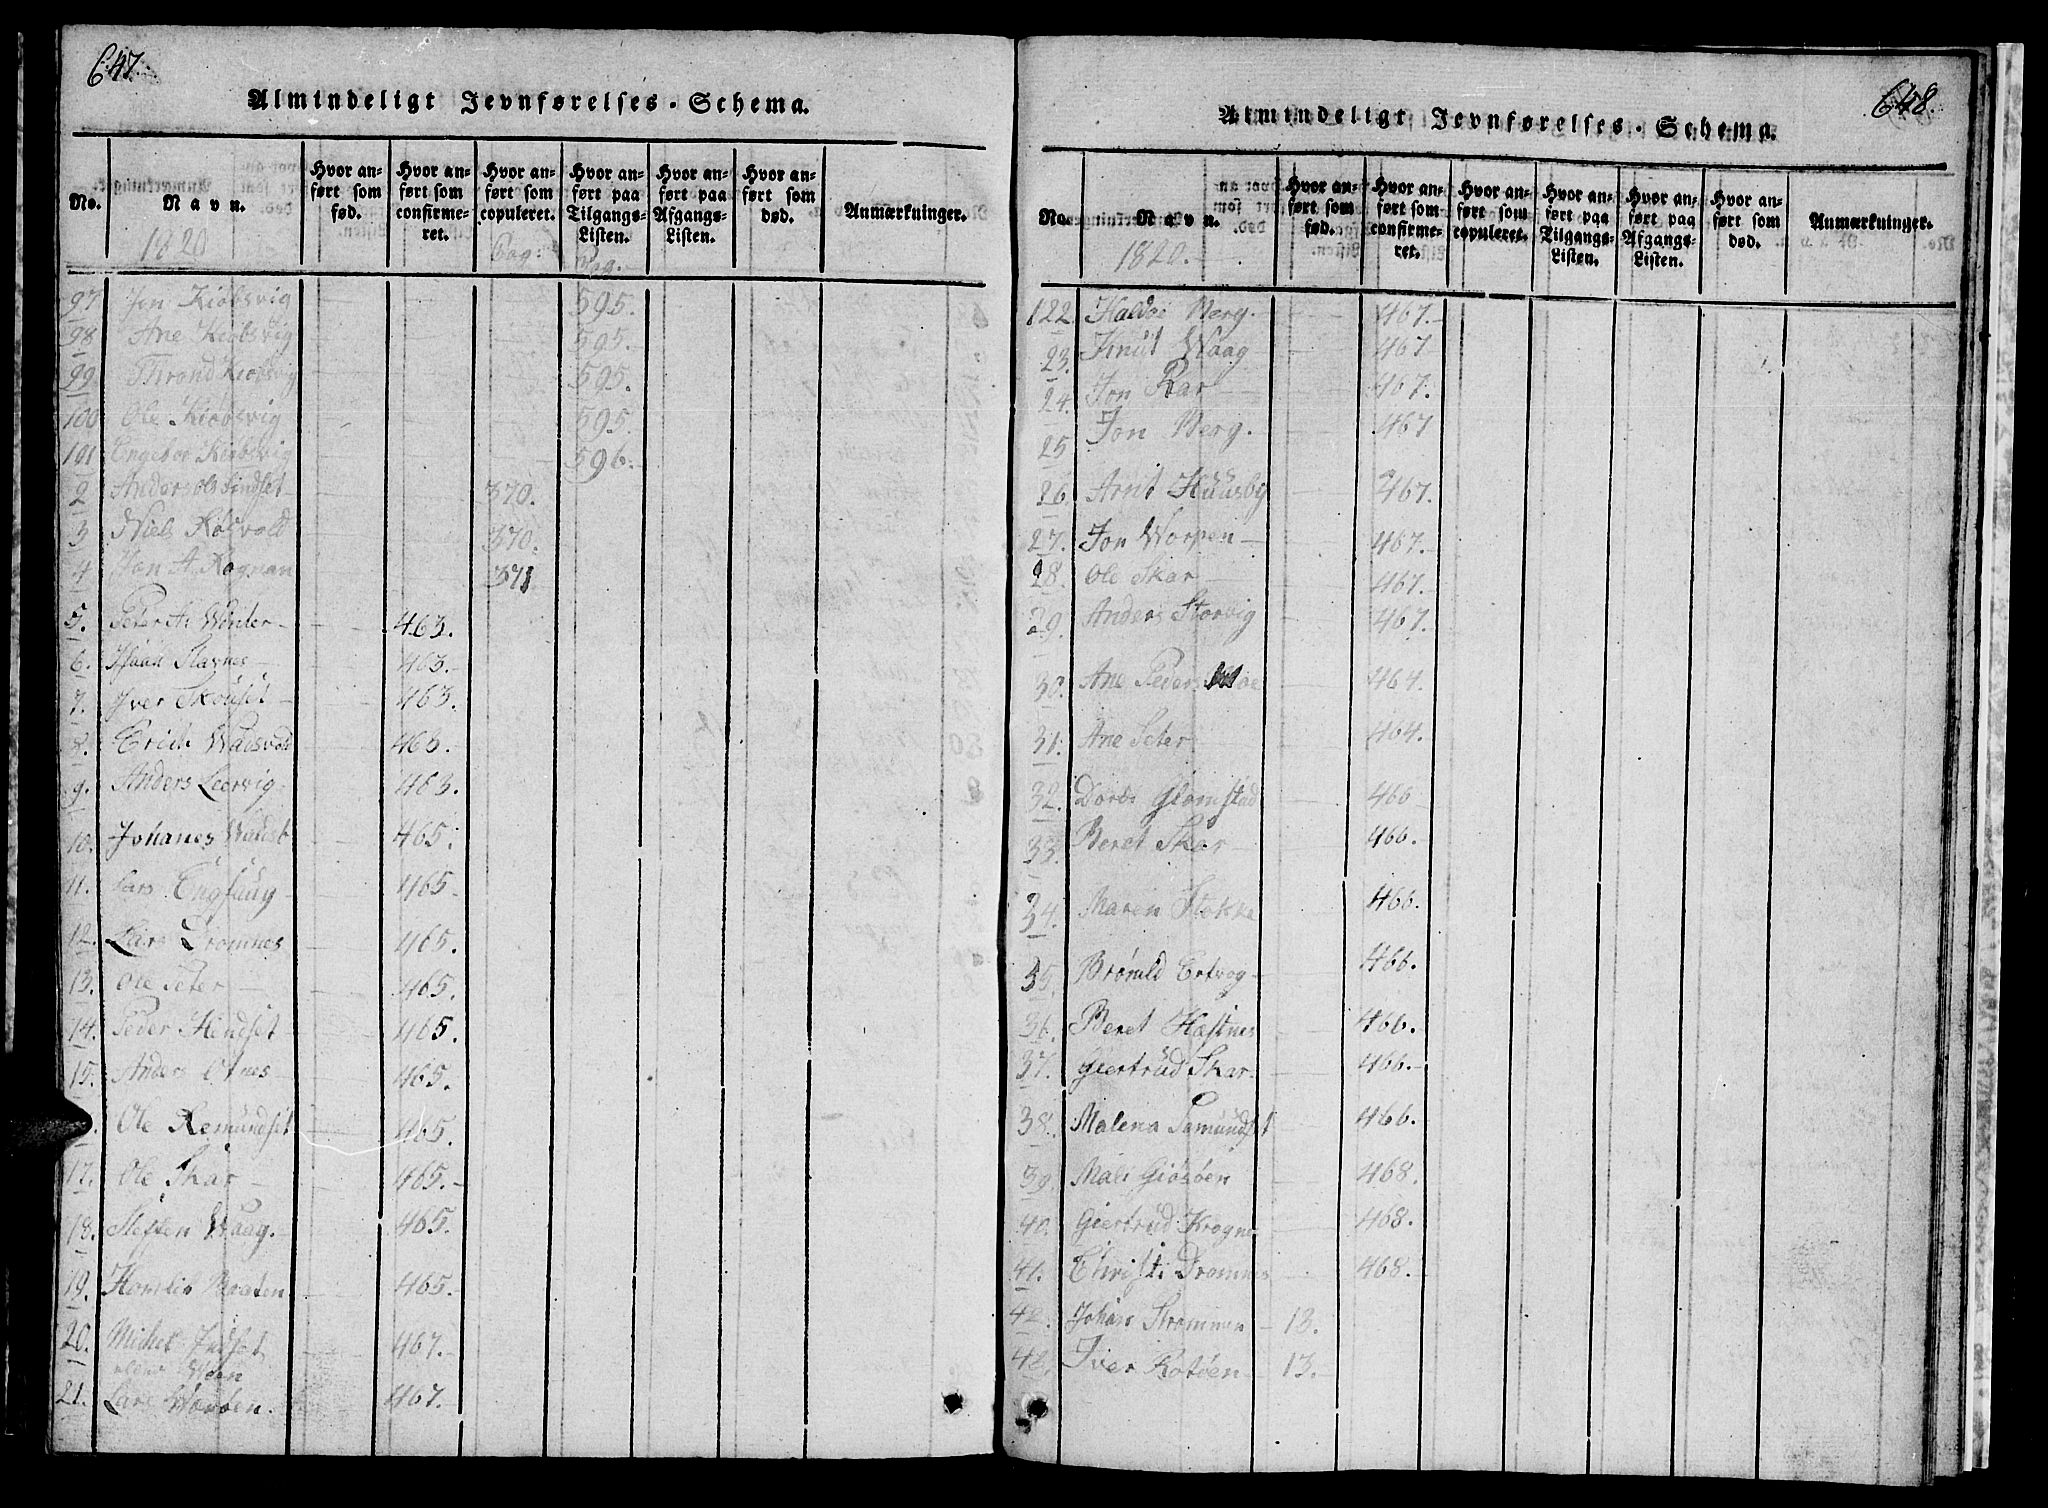 647.
Almindeligt Jevnførelses-Schema.
No.
Navn.
1820
Hvor anført som fød.
Hvor anført som confirmeret.
Hvor anført som copuleret.
Pag:
Hvor anført paa Tilgangs-Listen.
Pag.
Hvor anført paa Afgangs-Listen.
Hvor anført som død.
Anmærkninger.
97 Jon Kiøbsvig 595.
98 Ane Kiøbsvig 595.
99 Thrond Kiøbsvig 595.
100 Ole Kiøbsvig 595.
101 Kiøbsvig 596.
2 Anders 370.
3 Niels 370.
4 Jon A. Rognan 371
5. Peter 463.
6. 463.
7. Iver Skouset 463.
8. Erich 463.
9. Anders Leervig 463.
10. Johanes 465.
11. Lars 465
12. Lars Dromnes 465.
13. Ole Seter 465.
14. Peder Hendset 465.
15. Anders 465.
Ole Remundset 465.
17. Ole Skar 465.
18. Steffen Waag. 465.
19. Braaten 465.
20. Michel 467.
21. Lars 467.
648.
Almindeligt Jevnførelses-Schema.
No.
Navn.
1820.
Hvor anført som fød.
Hvor anført som confirmeret.
Hvor anført som copuleret.
Hvor anført paa Tilgangs-Listen.
Hvor anført paa Afgangs-Listen.
Hvor anført som død.
Anmærkninger.
122. Haldoe Berg. 467.
23. Knut Waag 467
24. Jon Rar 467.
25 Jon Berg. 467
26 Arnt Huusby 467.
27. Jon Worpen 467.
28. Ole Skar 467.
29. Anders Storvig 467.
30. Ane Peders Moe 464.
31. Ane Seter 464.
32. Dorte Glomstad 466
33. Beret Skar 466.
34. Maren Stokke 466.
35. Ertvog 466.
36. Beret Hastnes 466.
37. Giertrud Skar. 466.
38. Malena 466.
39. Mali Giøsøen 468.
40. Giertrud 468.
41. Christi Dromnes 468.
42. Johan Strommen 13.
42. Iver Rotøen 13.